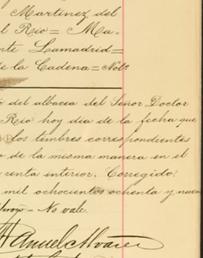 Martinez del
l Rio = Ma-
nte Lamadrid =
de la Cadena = Not°
del albacea del Señor Doctor
Rio hoy dia de la fecha que
los timbres correspondientes
de la misma manera en el
renta interior. Corregido:
mil ochocientos ochenta y nueve
No vale.
Manuel Alvarez